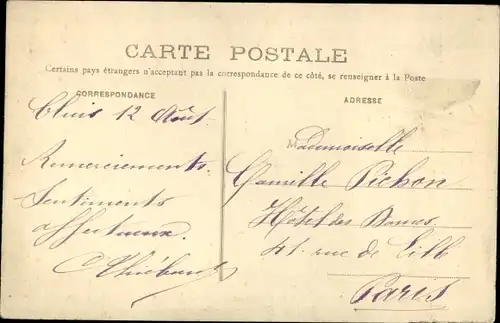 CARTE POSTALE
Certains pays étrangers n'acceptant pas la correspondance de ce côté, se renseigner à la Poste
CORRESPONDANCE
Cluis 12 Août
Remerciements.
Sentiments
affectueux.
CThiébaut
ADRESSE
Mademoiselle
Camille Pichon
Hôtel des Dames
41. rue de Lill
Paris